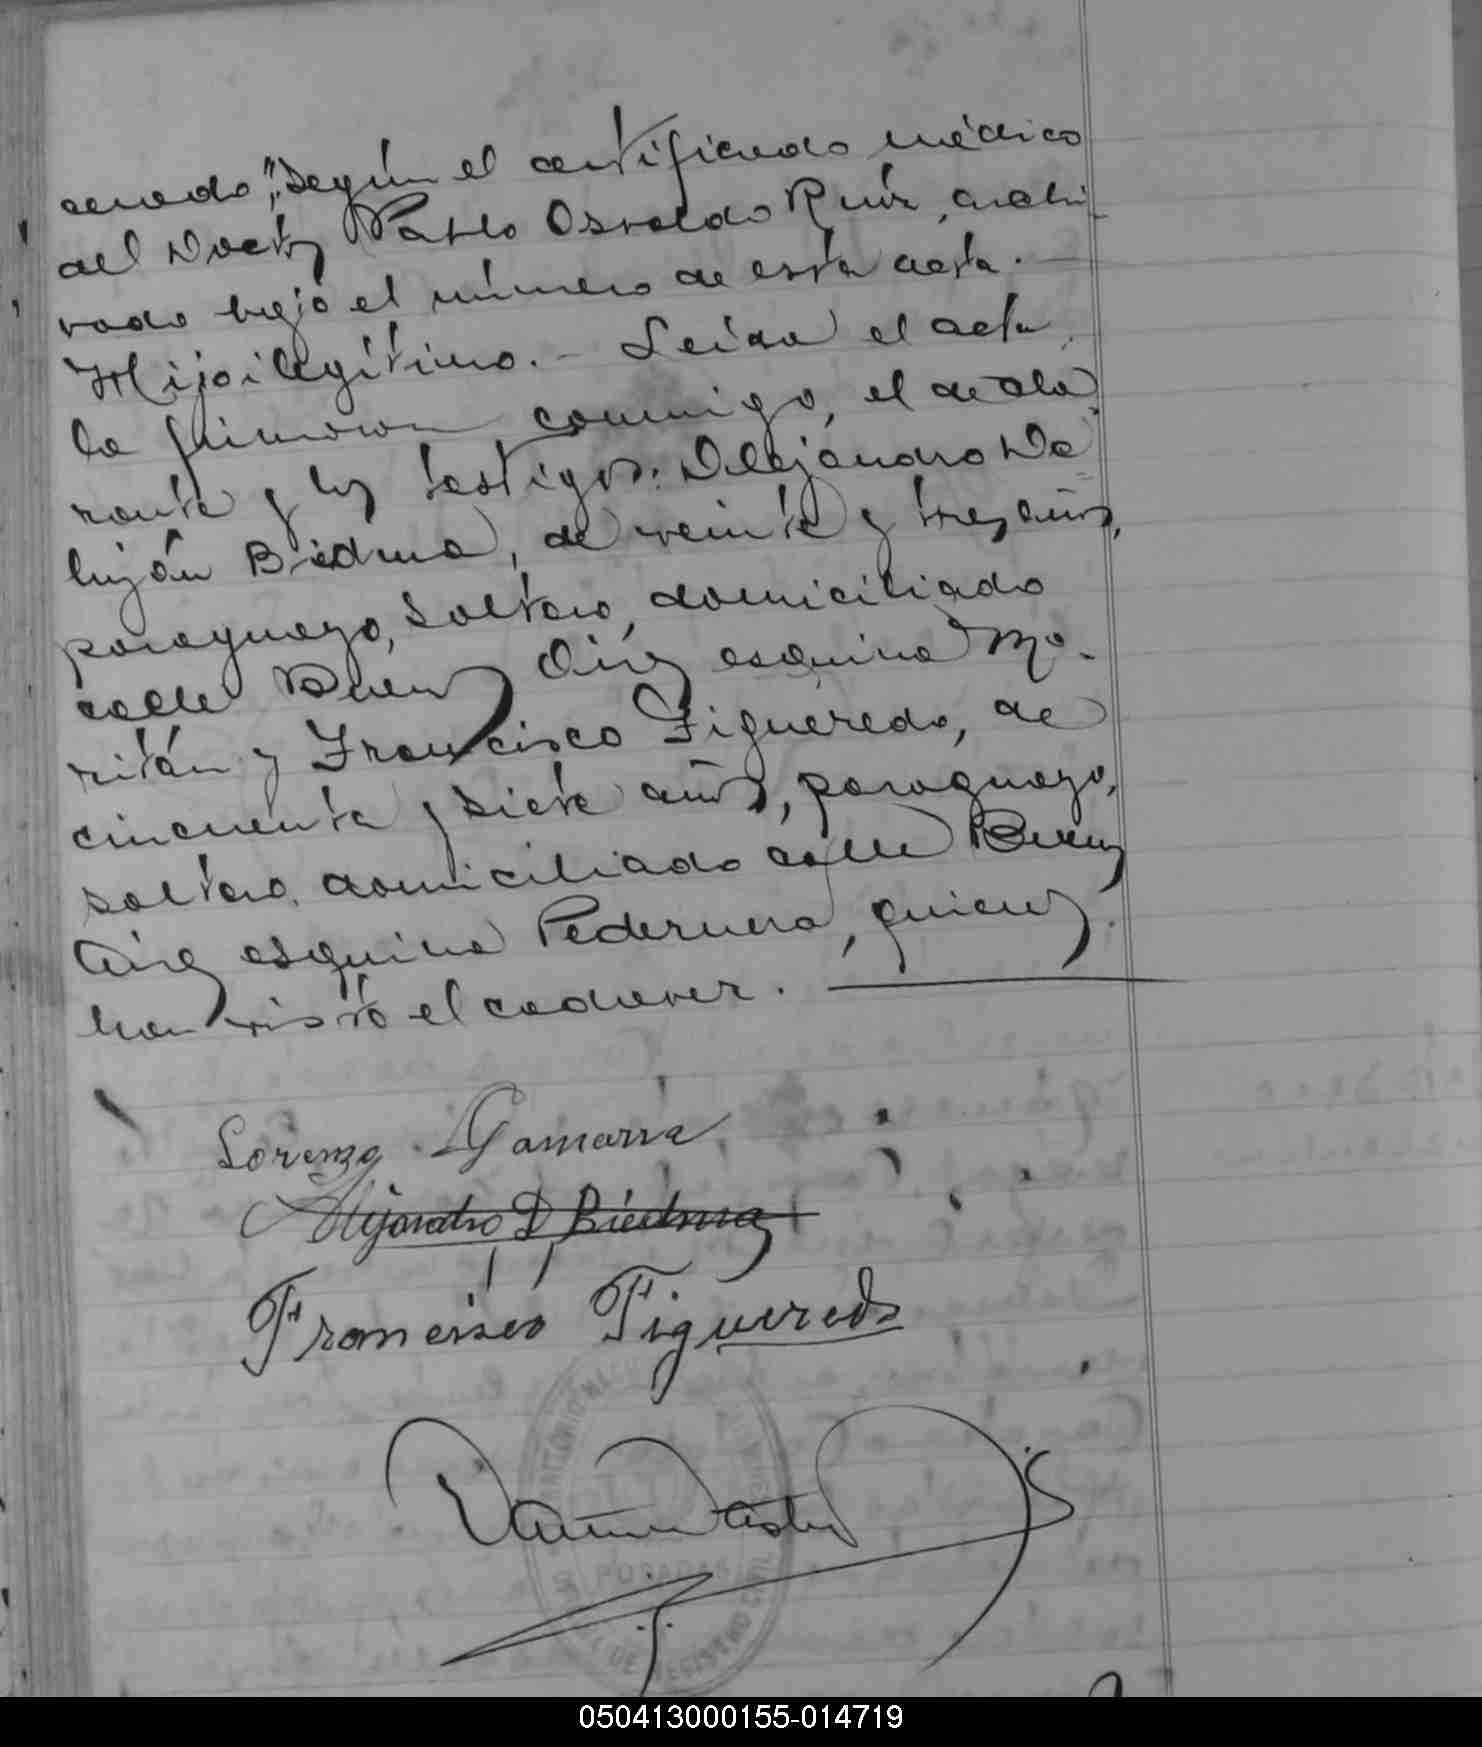 cerado", según el certificado médico
del Doctor Pablo Osvaldo Ruíz, archi-
vado bajo el número de esta acta.
Hijo ilegítimo. - Leída el acta,
la firmaron conmigo, el decla-
rante y los testigos: Alejandro De
Biedma, de veinte y tres años,
paraguayo, soltero, domiciliado
calle Buenos Aires esquina Mo-
y Francisco Figueredo, de
cincuenta y siete años, paraguayo,
soltero, domiciliado calle Buenos
Aires esquina Pedernera, quienes
han visto el cadaver.
Lorenzo Gamarra
Alejandro D Biedma
Francisco Figueredo
POSADAS
DE REGISTRO CIVIL
050413000155-014719